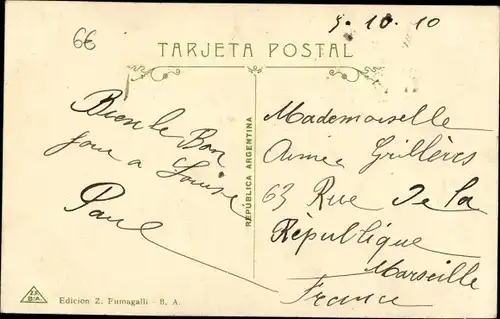 6€
5. 10. 10
TARJETA POSTAL
REPÚBLICA ARGENTINA
Bien le Bon
jour a Louise
Paul
Mademoiselle
Aimée Grillères
63 Rue De La
Rèpublique
Marseille
France
Z.F.
B.A.
Edicion Z. Fumagalli - B. A.